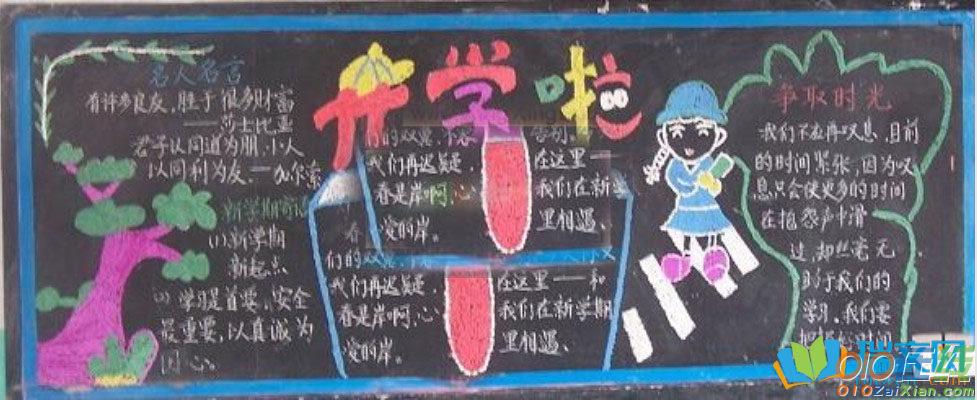 名人名言
有许多良友，胜于很多财富
——莎士比亚
君子以同道为朋，小人
以同利为友。
新学期寄语
(1)新学期
新起点
(2) 学习是首要，安全
最重要，以真诚为
开学啦
们的双翼，不
我们再迟疑，
春是岸啊，心
爱的岸。
告别，
在这里一
我们在新
里相遇、
春
们的双翼
我们再迟疑，
春是岸啊，心
爱的岸。
在这里——和
我们在新学期
里相遇、
争取时光
我们不应再叹息，目前
的时间紧张，因为叹
息只会使更多的时间
在抱怨声中滑
过，却丝毫无
助于我们的
学习，我们要
010在线
010ZaiXian.com